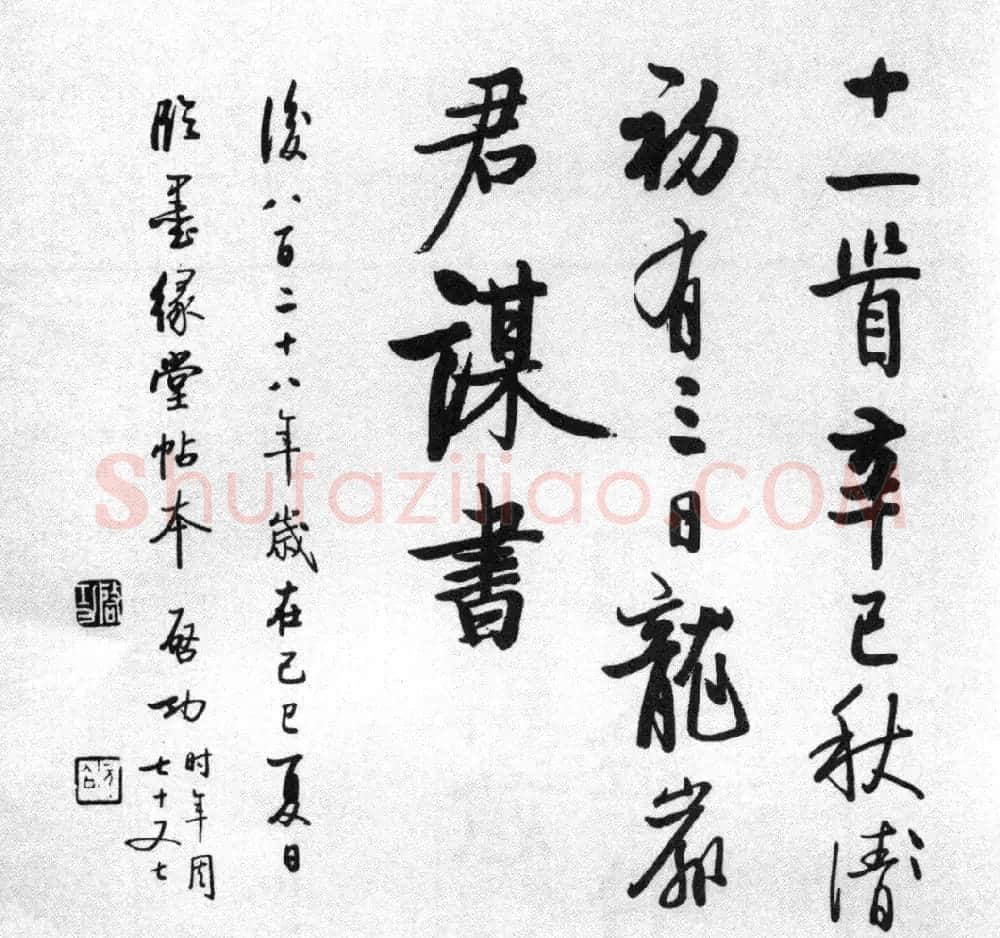 十一首辛巳秋清
初有三日龍巖
君謨書
後八百二十八年歲在己巳夏日
臨墨緣堂帖本 啓功
时年周
七十又七
Shufaziliao.COM